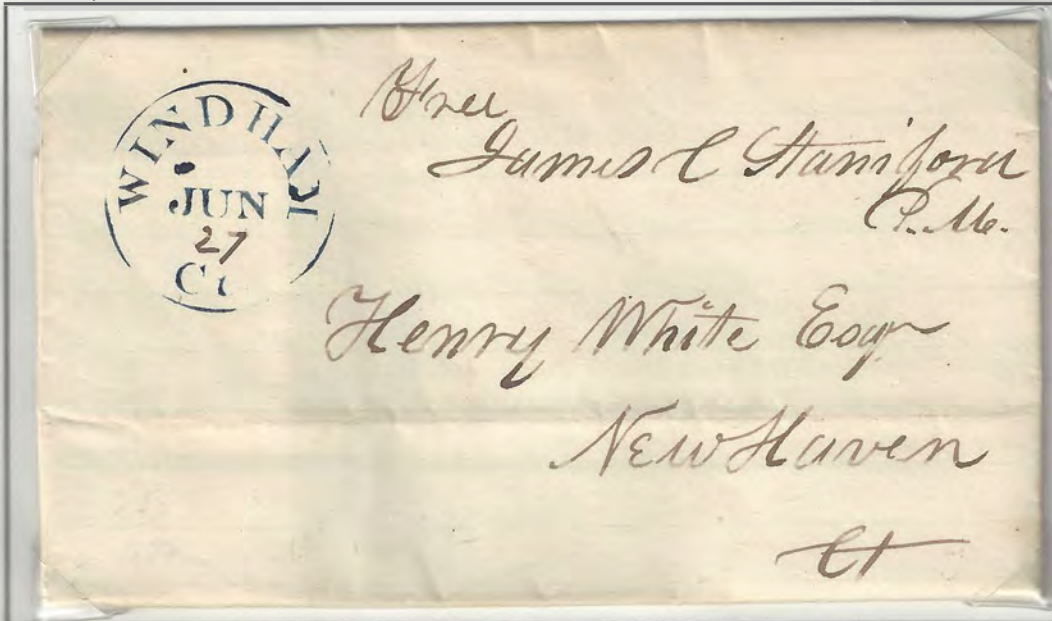 WINDHAM
JUN
27
Ct
Free
James C Staniford
P.M.
Henry White Esqr
New Haven
Ct